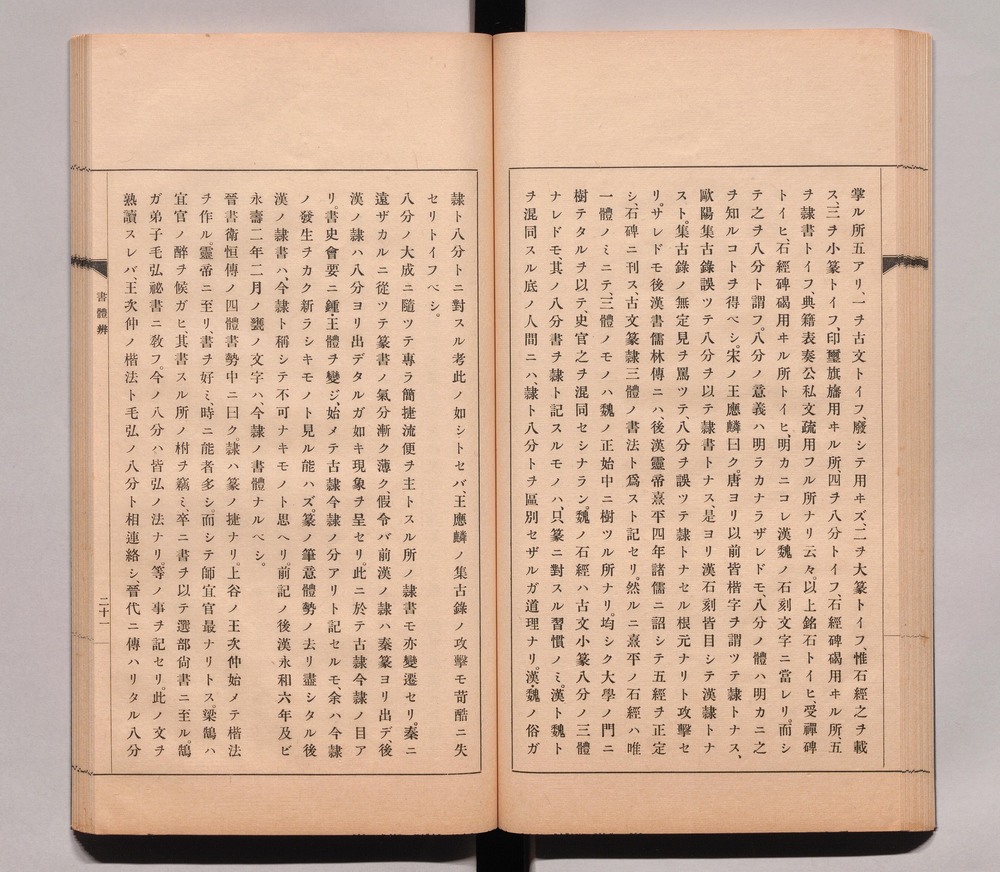 掌ル所五アリ、一ヲ古文トイフ、廢シテ用ヰズ、二ヲ大篆トイフ、惟石經之ヲ載
ス、三ヲ小篆トイフ、印璽旗旛用ヰル所、四ヲ八分トイフ、石經碑碣用ヰル所、五
ヲ隷書トイフ、典籍表奏公私文疏用フル所ナリ云々。以上銘石トイヒ、受禪碑
トイヒ、石經碑碣用ヰル所トイヒ、明カニコレ漢魏ノ石刻文字ニ當レリ。而シ
テ之ヲ八分ト謂フ。八分ノ意義ハ明ラカナラザレドモ、八分ノ體ハ明カニ之
ヲ知ルコトヲ得ベシ。宋ノ王應麟曰ク。唐ヨリ以前皆楷字ヲ謂ツテ隷トナス、
歐陽集古錄誤ツテ八分ヲ以テ隷書トナス、是ヨリ漢石刻皆目シテ漢隷トナ
スト。集古錄ノ無定見ヲ罵ツテ、八分ヲ誤ツテ隷トナセル根元ナリト攻擊セ
リ。サレドモ後漢書儒林傳ニハ、後漢靈帝熹平四年諸儒ニ詔シテ五經ヲ正定
シ、石碑ニ刊ス、古文篆隷三體ノ書法ト爲スト記セリ。然ルニ熹平ノ石經ハ唯
一體ノミニテ、三體ノモノハ魏ノ正始中ニ樹ツル所ナリ。均シク大學ノ門ニ
樹テタルヲ以テ、史官之ヲ混同セシナラン。魏ノ石經ハ古文小篆八分ノ三體
ナレドモ、其ノ八分書ヲ隷ト記スルモノハ、只篆ニ對スル習慣ノミ。漢ト魏ト
ヲ混同スル底ノ人間ニハ、隷ト八分トヲ區別セザルガ道理ナリ。漢・魏ノ俗ガ
隷ト八分トニ對スル考此ノ如シトセバ、王應麟ノ集古錄ノ攻擊モ苛酷ニ失
セリトイフベシ。
八分ノ大成ニ隨ツテ專ラ簡捷流便ヲ主トスル所ノ隷書モ亦變遷セリ。秦ニ
遠ザカルニ從ツテ篆書ノ氣分漸ク薄ク、假令バ前漢ノ隷ハ秦篆ヨリ出デ、後
漢ノ隷ハ八分ヨリ出デタルガ如キ現象ヲ呈セリ。此ニ於テ古隷今隷ノ目ア
リ。書史會要ニ鍾・王體ヲ變ジ、始メテ古隷今隷ノ分アリト記セルモ、余ハ今隷
ノ發生チカク新ラシキモノト見ル能ハズ。篆ノ筆意體勢ノ去リ盡シタル後
漢ノ隷書ハ、今隷ト稱シテ不可ナキモノト思ヘリ。前記ノ後漢永和六年及ビ
永壽二年二月ノ甕ノ文字ハ、今隷ノ書體ナルベシ。
晉書衛恒傳ノ四體書勢中ニ曰ク。隷ハ篆ノ捷ナリ。上谷ノ王次仲始メテ楷法
ヲ作ル。靈帝ニ至リ、書ヲ好ミ、時ニ能者多シ。而シテ師宜官最ナリトス。梁鵠ハ
宜官ノ醉ヲ候ガヒ、其書スル所ノ柎ヲ竊ミ、卒ニ書ヲ以テ選部尙書ニ至ル。鵠
ガ弟子毛弘祕書ニ敎フ。今ノ八分ハ皆弘ノ法ナリ。等ノ事ヲ記セリ。此ノ文ヲ
熟讀スレバ、王次仲ノ楷法ト毛弘ノ八分ト相連絡シ、晉代ニ傳ハリタル八分
書體辨
二十一